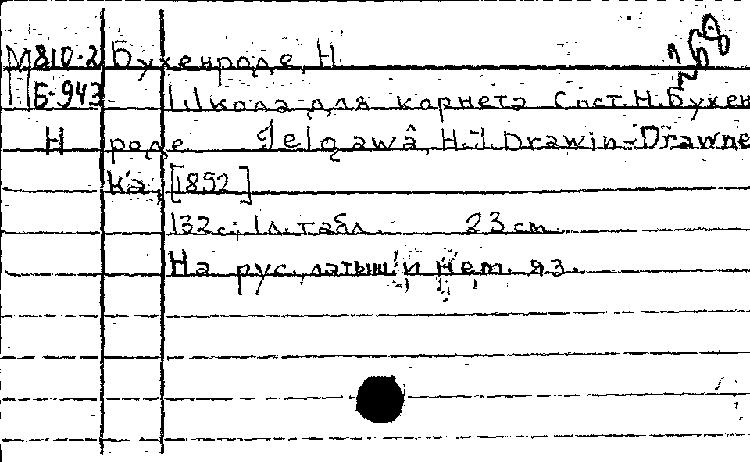 М810-2 Букенроде, Н.
Б-943 Школа для корнета Сост. Н. Букен
Н роде Jelgawâ, H.J. Drawin-Drawne
ka, [1892]
132 с; 1 л. табл. 23 cm.
На рус., латыш. и нем. яз.